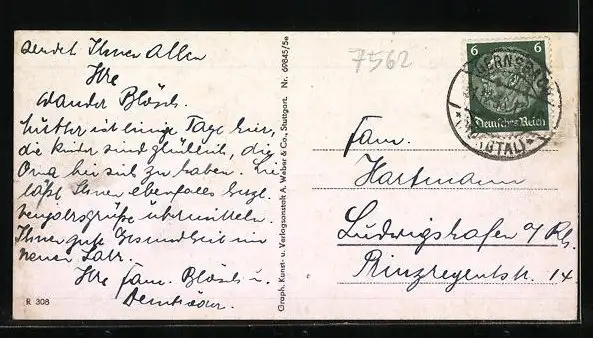 sendet Ihnen Allen
Ihre
Wanda Blösch.
Mutter ist einige Tage hier,
die Kinder sind glücklich, die
Oma bei sich zu haben. Sie
läßt Ihnen ebenfalls herzl.
Neujahrsgrüße übermitteln.
Ihnen gute Gesundheit im
neuen Jahr.
Ihre Fam. Blösch u.
R 308
Graph. Kunst- u. Verlagsanstalt A. Weber & Co., Stuttgart. Nr. 69845/5e
7562
6 6
Deutsches Reich
GERNSBACH
Fam.
Hartmann
Ludwigshafen a/Rh.
Prinzregentstr. 14